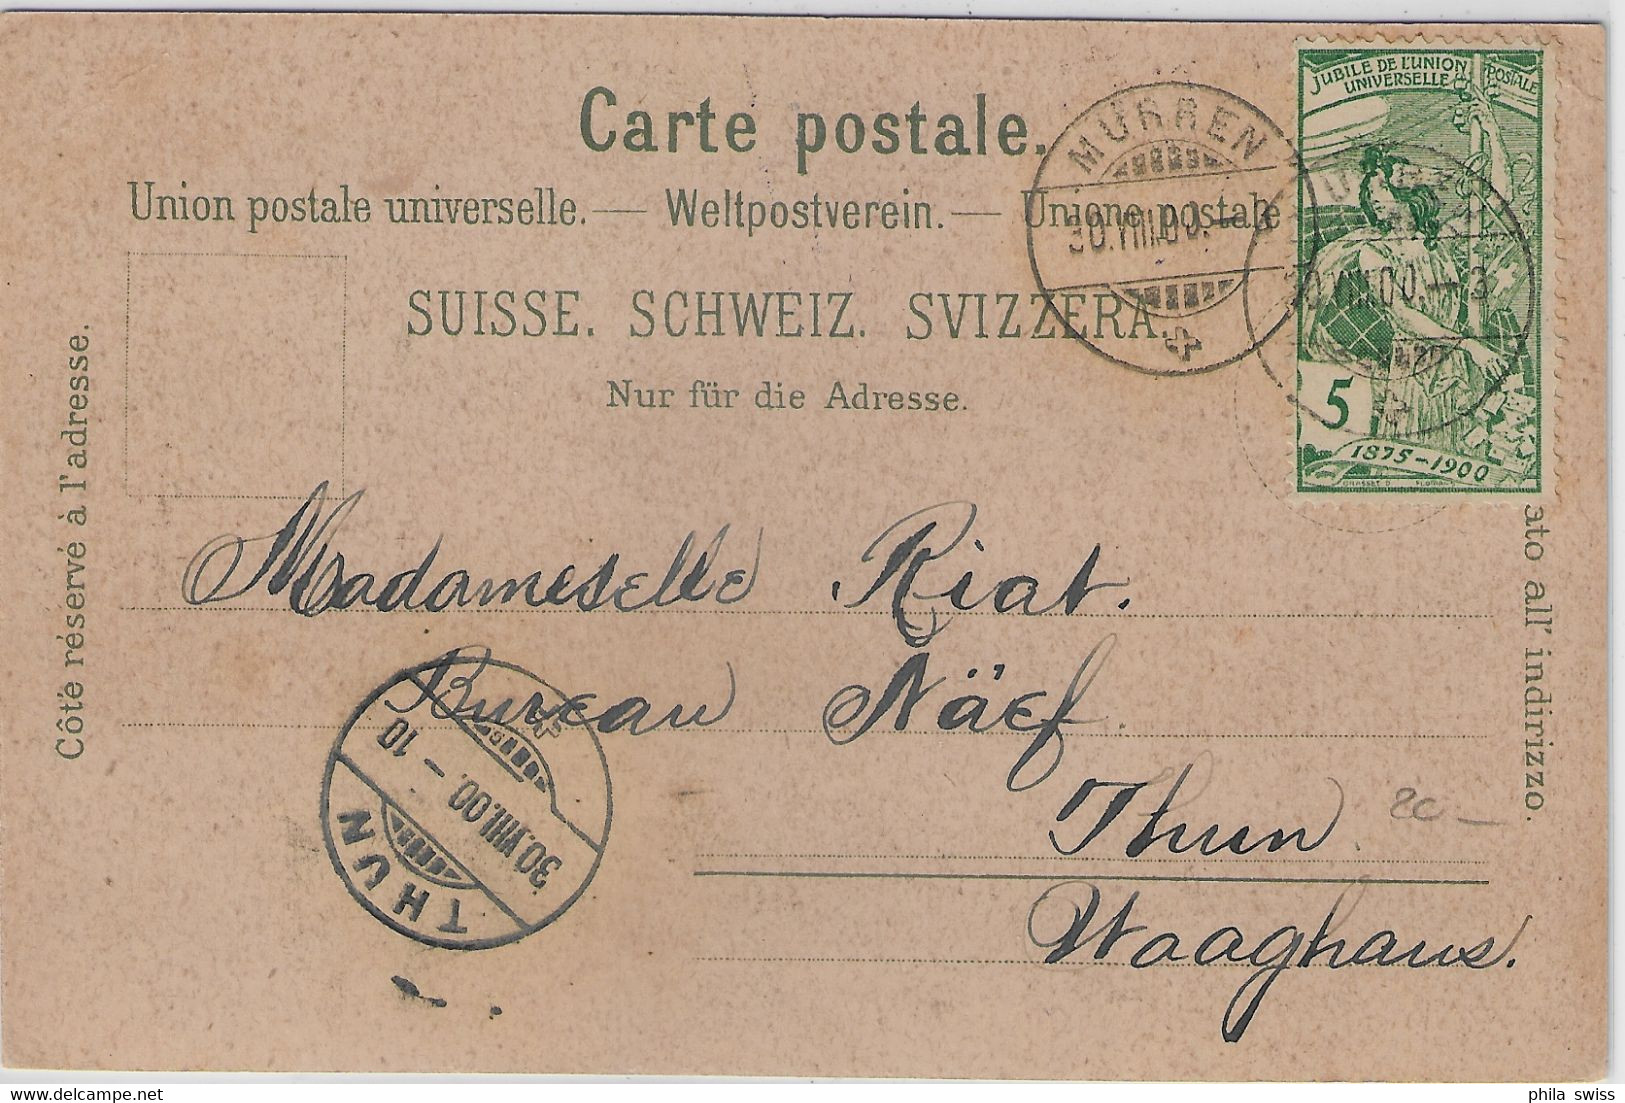 Carte postale.
Union postale universelle. — Weltpostverein. — Unione postale
SUISSE. SCHWEIZ. SVIZZERA.
Nur für die Adresse.
Côté réservé à l'adresse.
ato all' indirizzo.
JUBILE DE L'UNION POSTALE
UNIVERSELLE
5
1875-1900
MURREN
30.VIII.00.-
VIII.00.-3
Mademeselle Riat.
Bureau Näef.
Thun
Waaghaus.
THUN
30.VIII.00.-10
phila swiss